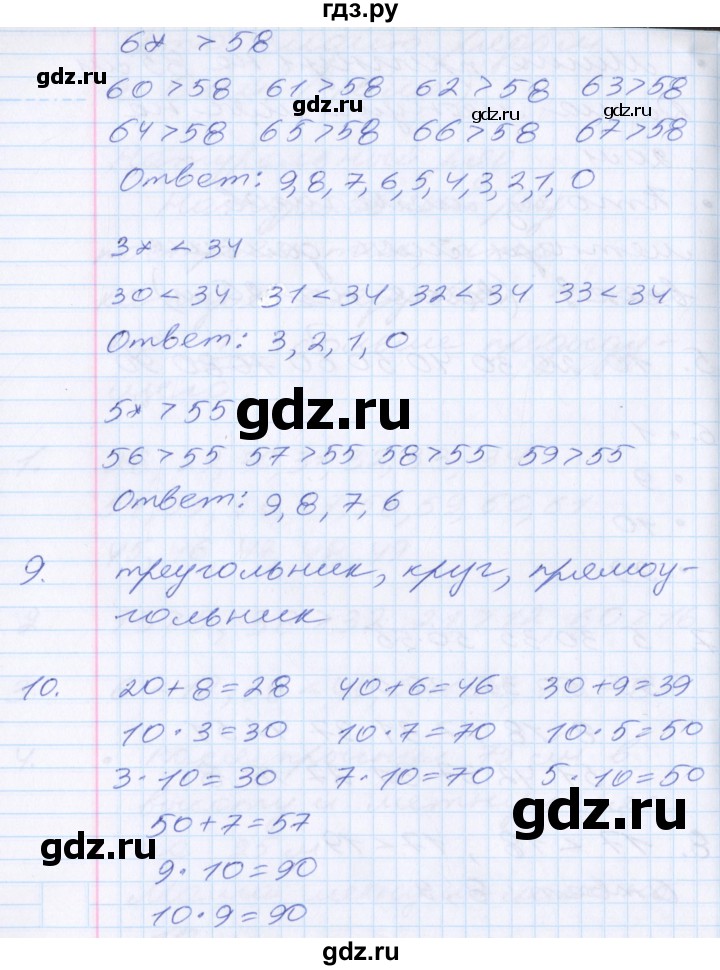 гдз.ру
6* > 58
60 > 58 61 > 58 62 > 58 63 > 58
gdz.ru
gdz.ru
gdz.ru
64 > 58 65 > 58 66 > 58 67 > 58
Ответ: 9, 8, 7, 6, 5, 4, 3, 2, 1, 0
3* < 34
30 < 34 31 < 34 32 < 34 33 < 34
Ответ: 3, 2, 1, 0
5* > 55
gdz.ru
56 > 55 57 > 55 58 > 55 59 > 55
Ответ: 9, 8, 7, 6
9. треугольник, круг, прямоу-
гольник
10. 20 + 8 = 28 40 + 6 = 46 30 + 9 = 39
10 · 3 = 30 10 · 7 = 70 10 · 5 = 50
3 · 10 = 30 7 · 10 = 70 5 · 10 = 50
gdz.ru
50 + 7 = 57
gdz.ru
9 · 10 = 90
10 · 9 = 90
gdz.ru